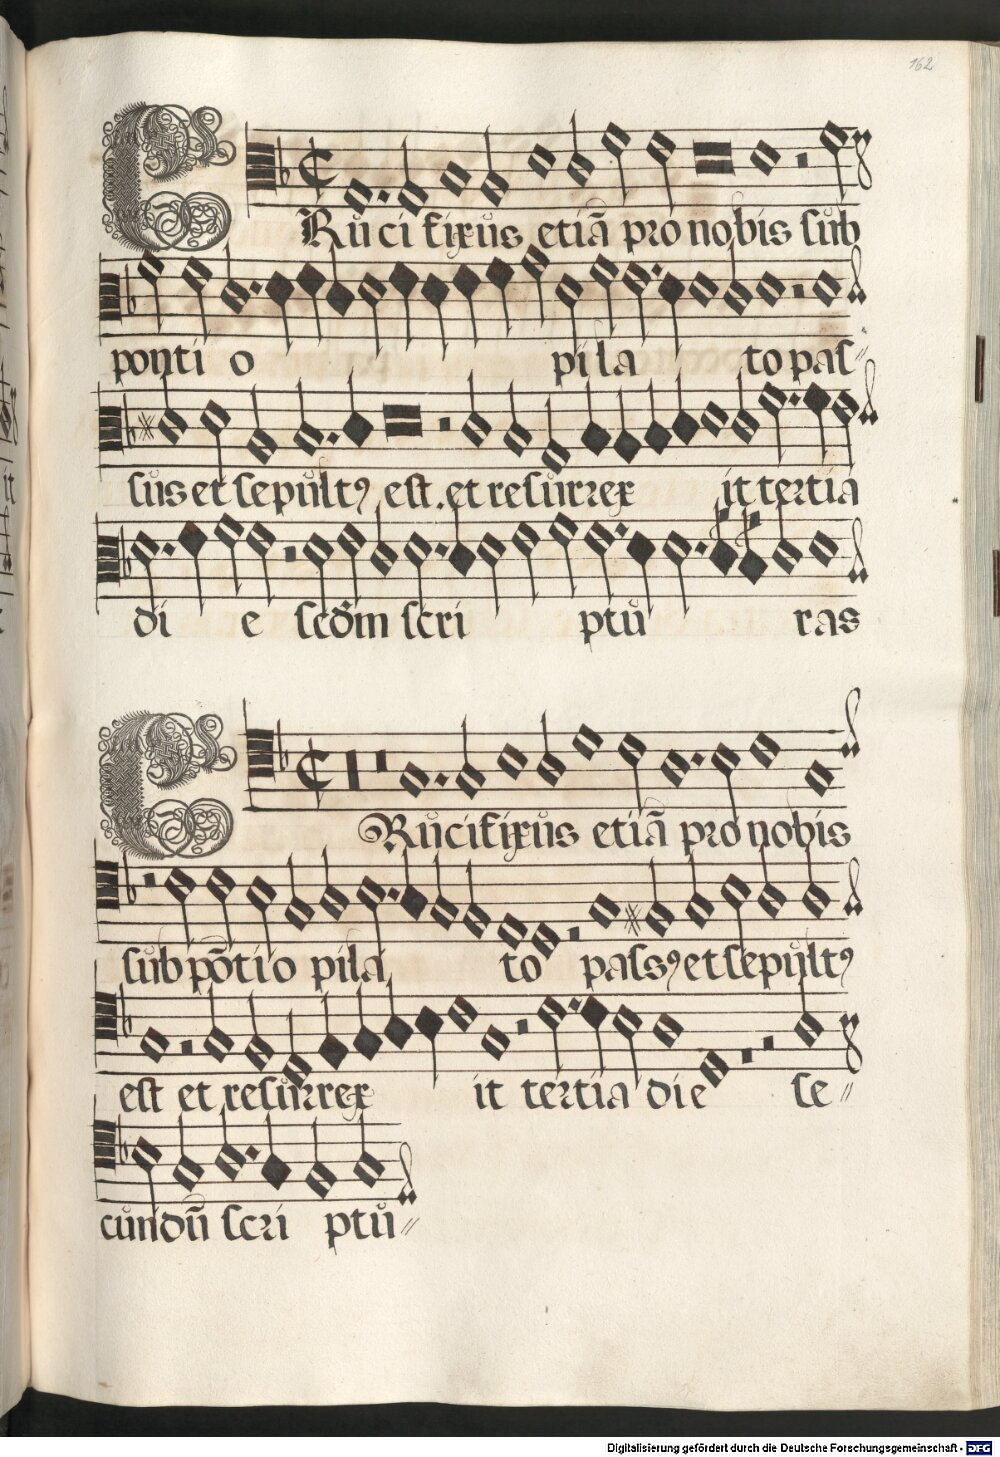 162
CRucifixus etiā pro nobis sub
ponti o pila to pas=
sus et sepultꝰ est. et resurrex it tertia
di e scd̄m scri ptu ras
CRucifixus etiā pro nobis
sub pōtio pila to passꝰ et sepultꝰ
est et resurrex it tertia die se=
cundū scri ptu=
Digitalisierung gefördert durch die Deutsche Forschungsgemeinschaft - DFG